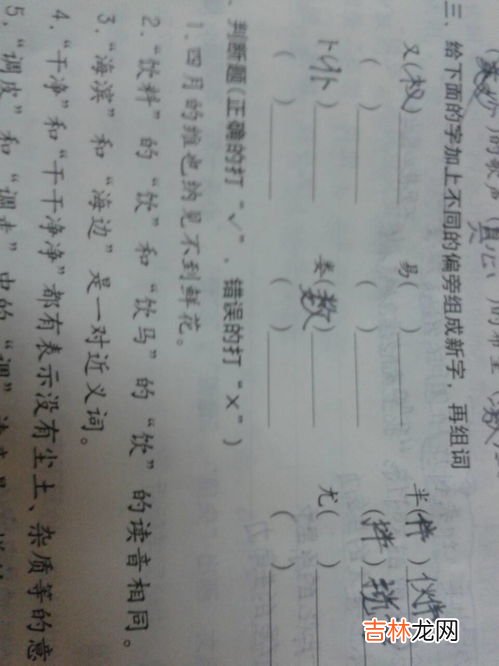 三、给下面的字加上不同的偏旁组成新字,再组词
又(权)______ 易(  )______ 半(伴)伙伴
(  )______ (  )______ (拌)
卜(仆)______ 娄(数)______ 尤(  )______
(  )______ (  )______ (  )______
、判断题(正确的打“√”,错误的打“×”)
1.四月的维也纳见不到鲜花。
2.“饮料”的“饮”和“饮马”的“饮”的读音相同。
3.“海滨”和“海边”是一对近义词。
4.“干净”和“干干净净”都有表示没有尘土、杂质等的意
5.“调皮”和“调走”中的“调”
吉林龙网